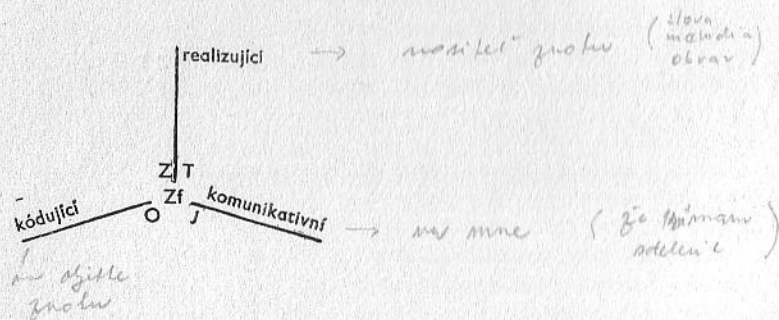 realizující → nositeľ znaku (slová
melódia
obraz)
Z T
Zf
kódující
O J
komunikativní → na mne (že vnímam
sdelenie)
na objekte
znaku